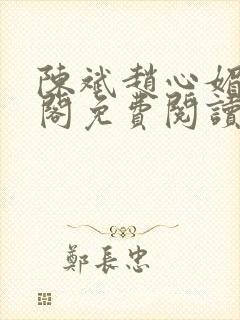 陳斌趙心媚
閣免費閱讀
鄭長忠